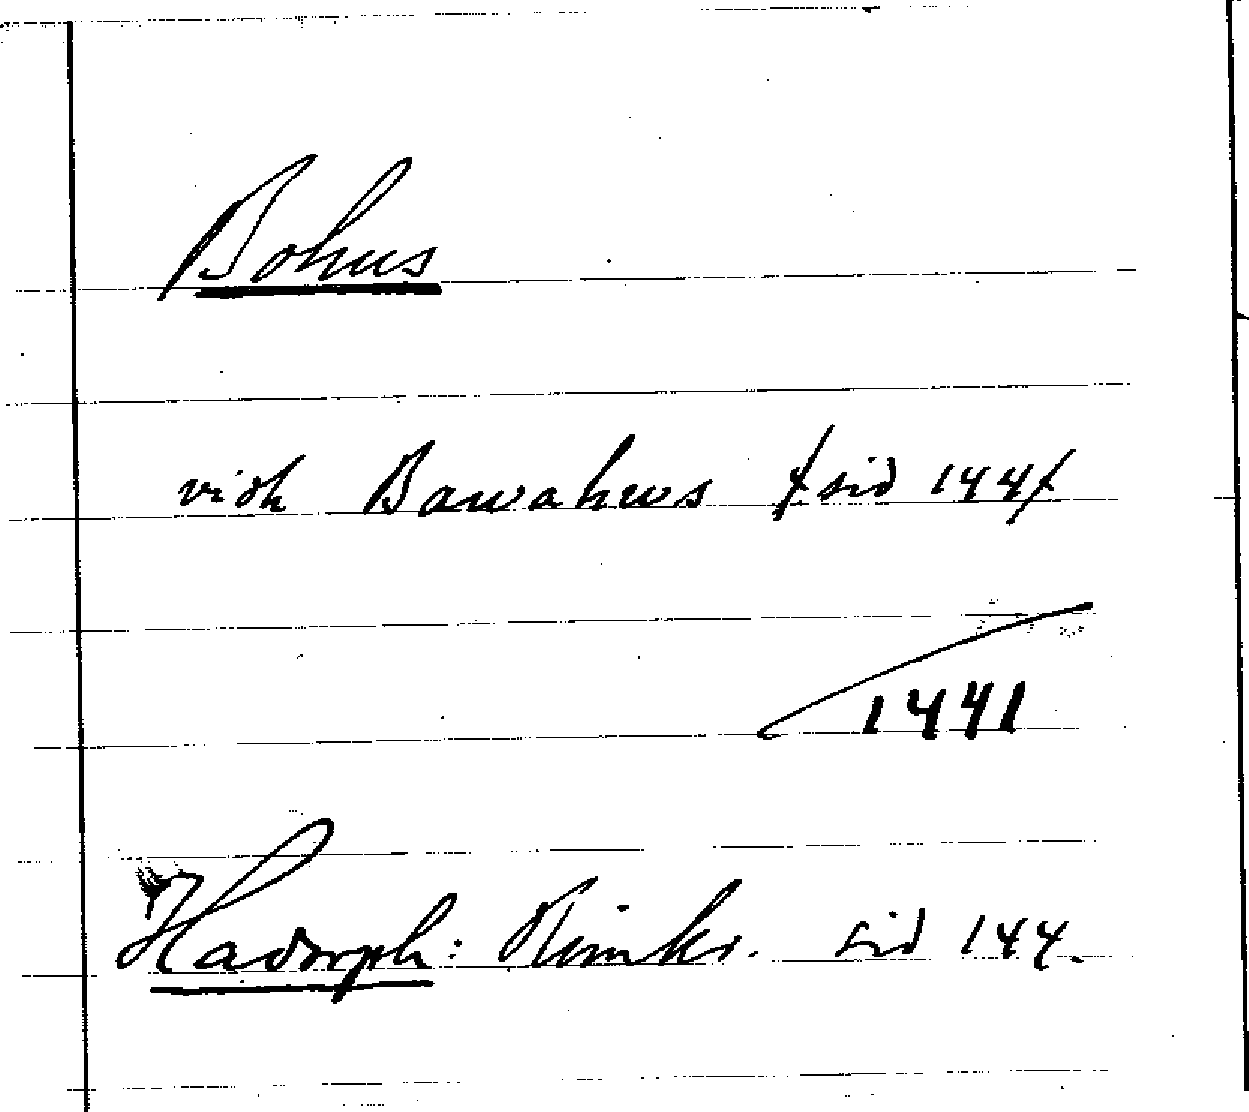 Bohus
vidh Bawahws /sid 144/
1441
Hadorph: Rimkr. sid 144.